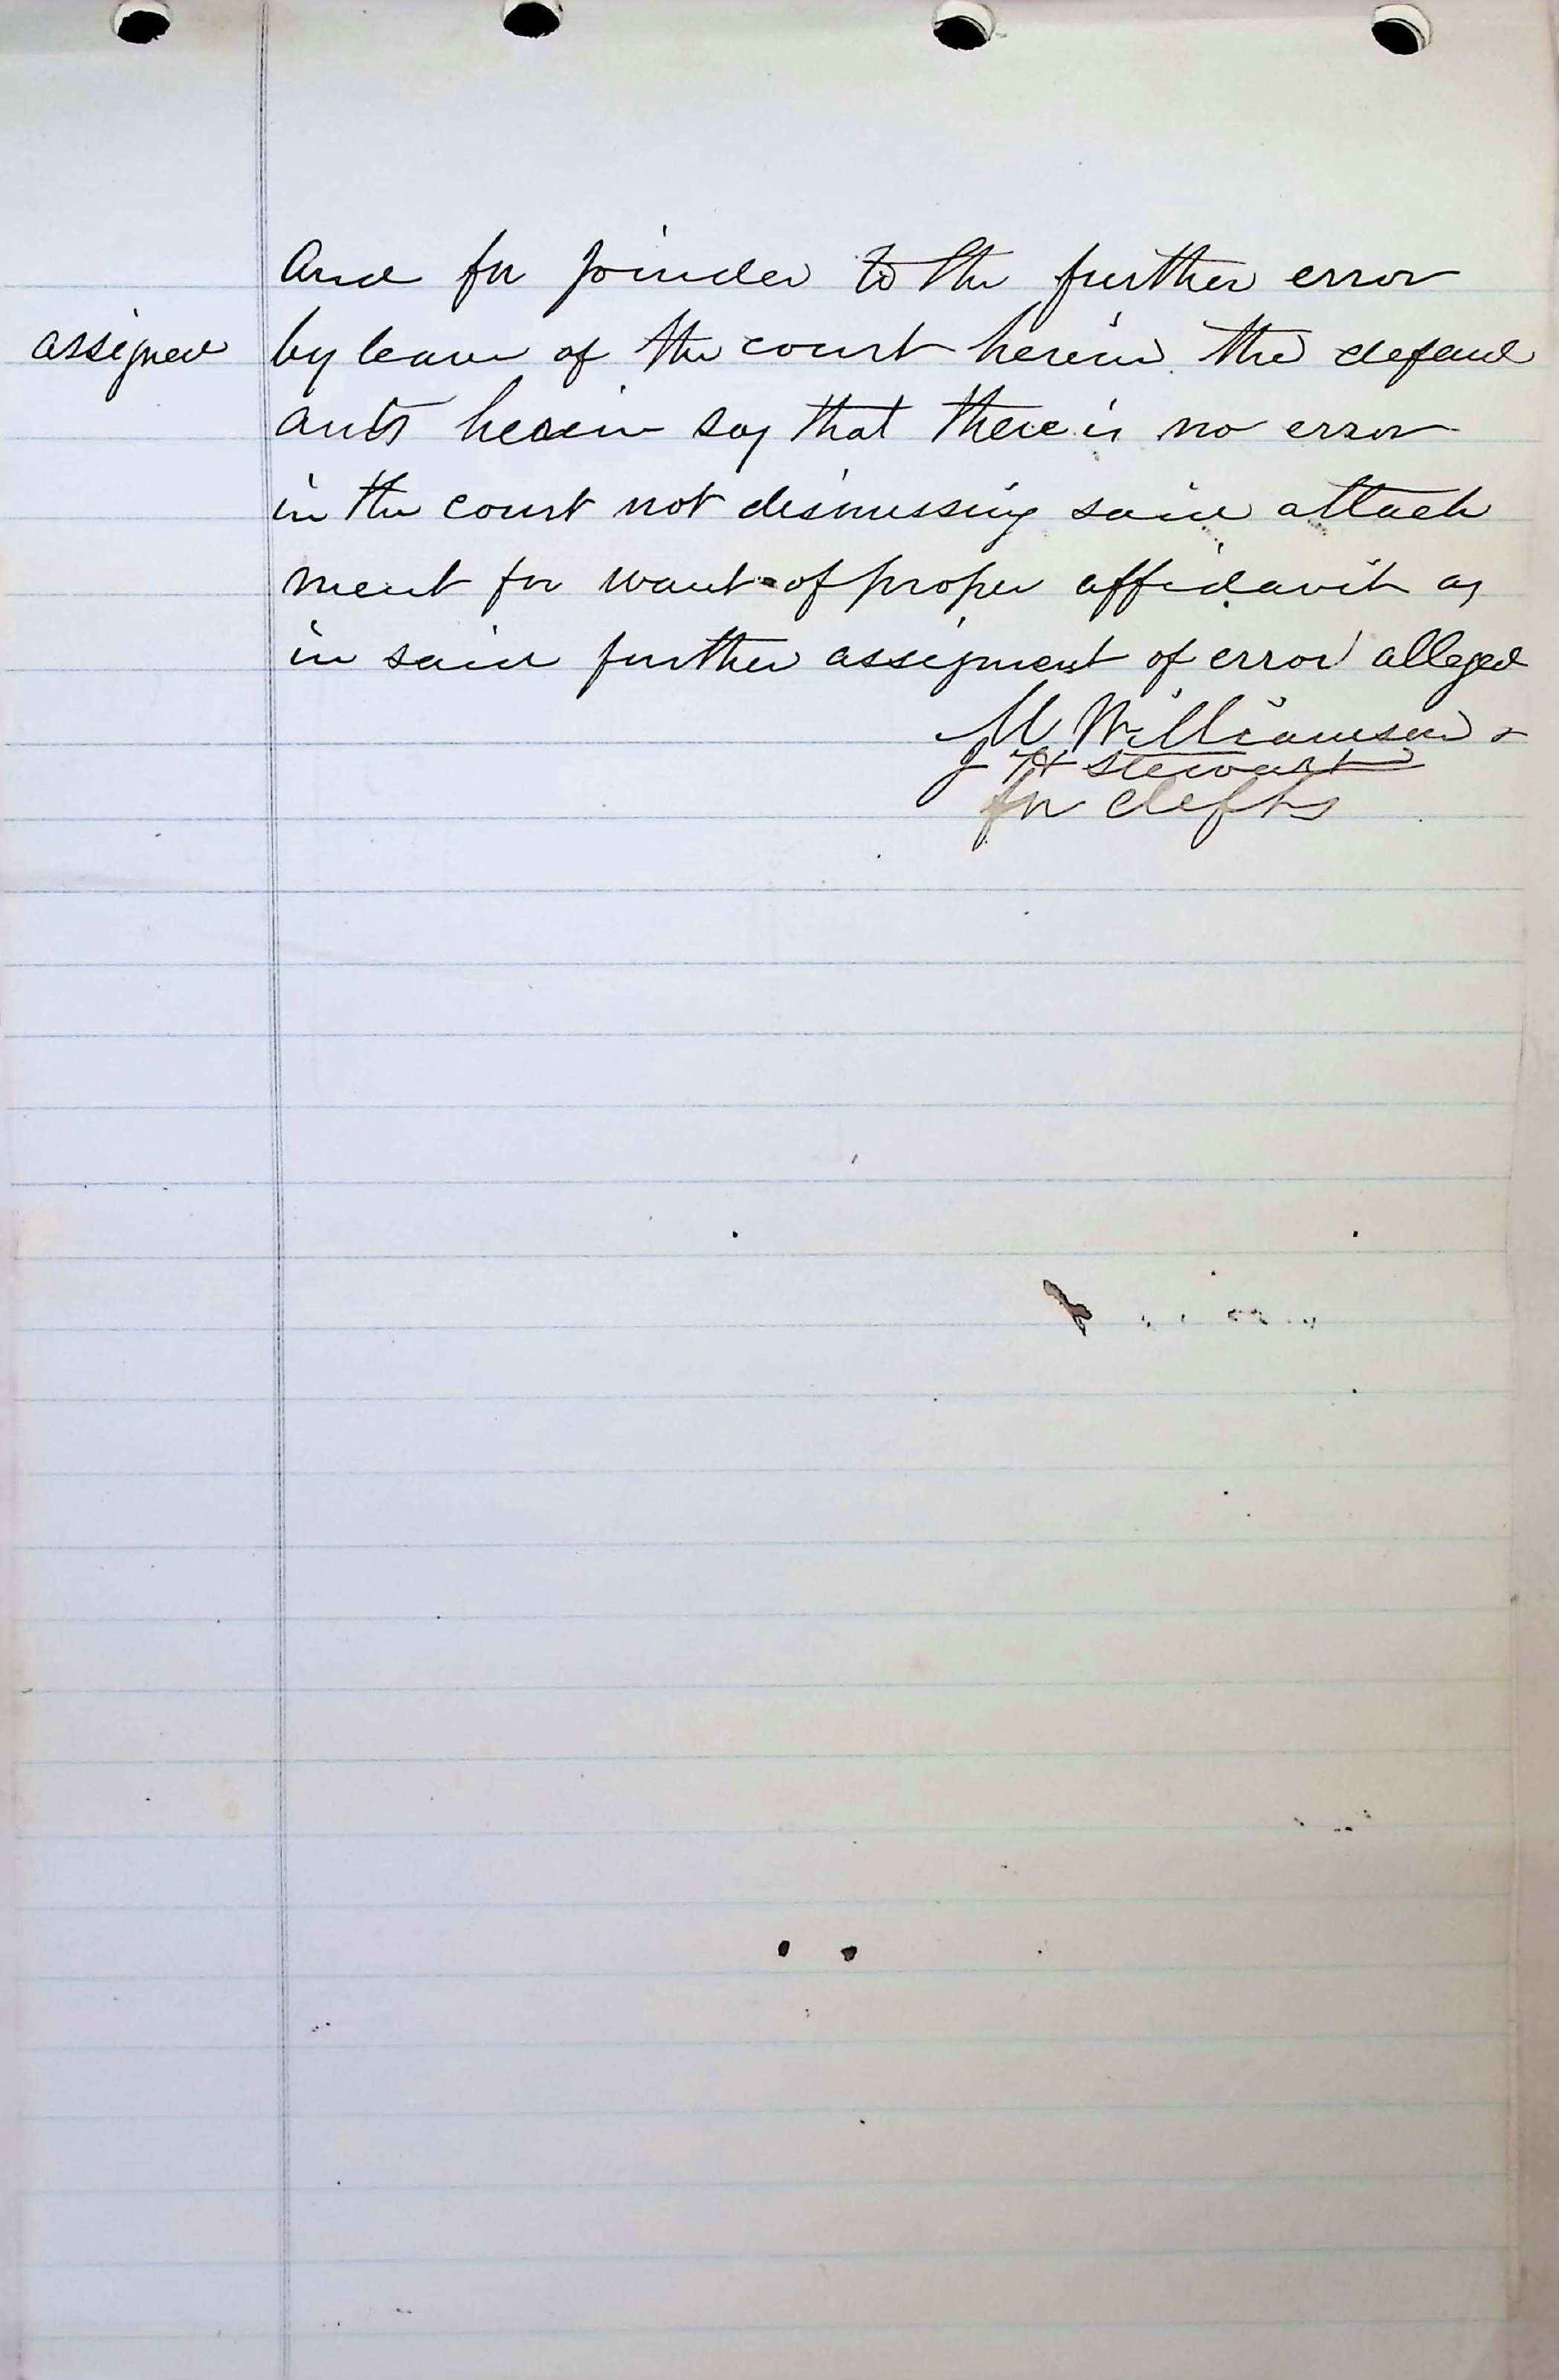 And for joinder to the further error
assigned by leave of the court herein the defend
ants herein say that there is no error
in the court not dismissing said attach
ment for want of proper affidavit as
in said further assignment of error alleged
M Williamson &
J H Stewart
for defts